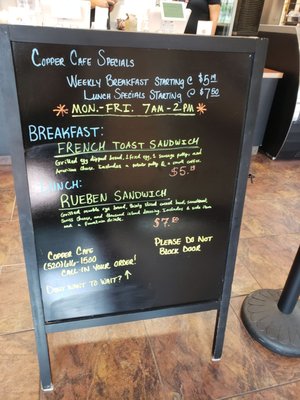 Copper Cafe Specials
Weekly Breakfast starting @ $5.19
Lunch Specials starting @ $7.50
Mon.-Fri. 7am-2pm
Breakfast:
French Toast Sandwich
Grilled egg dipped bread, 1 fried egg, 2 sausage patty, and
American cheese. Includes a potato patty & a small coffee.
$5.19
Lunch:
Rueben Sandwich
Grilled marble rye bread, thinly sliced corned beef, sauerkraut,
Swiss cheese, and thousand island dressing. Includes a side item
and a fountain drink.
$7.50
Copper Cafe
(520)616-1500
Call-in your order!
Don't want to wait? ↑
Please Do Not
Block Door